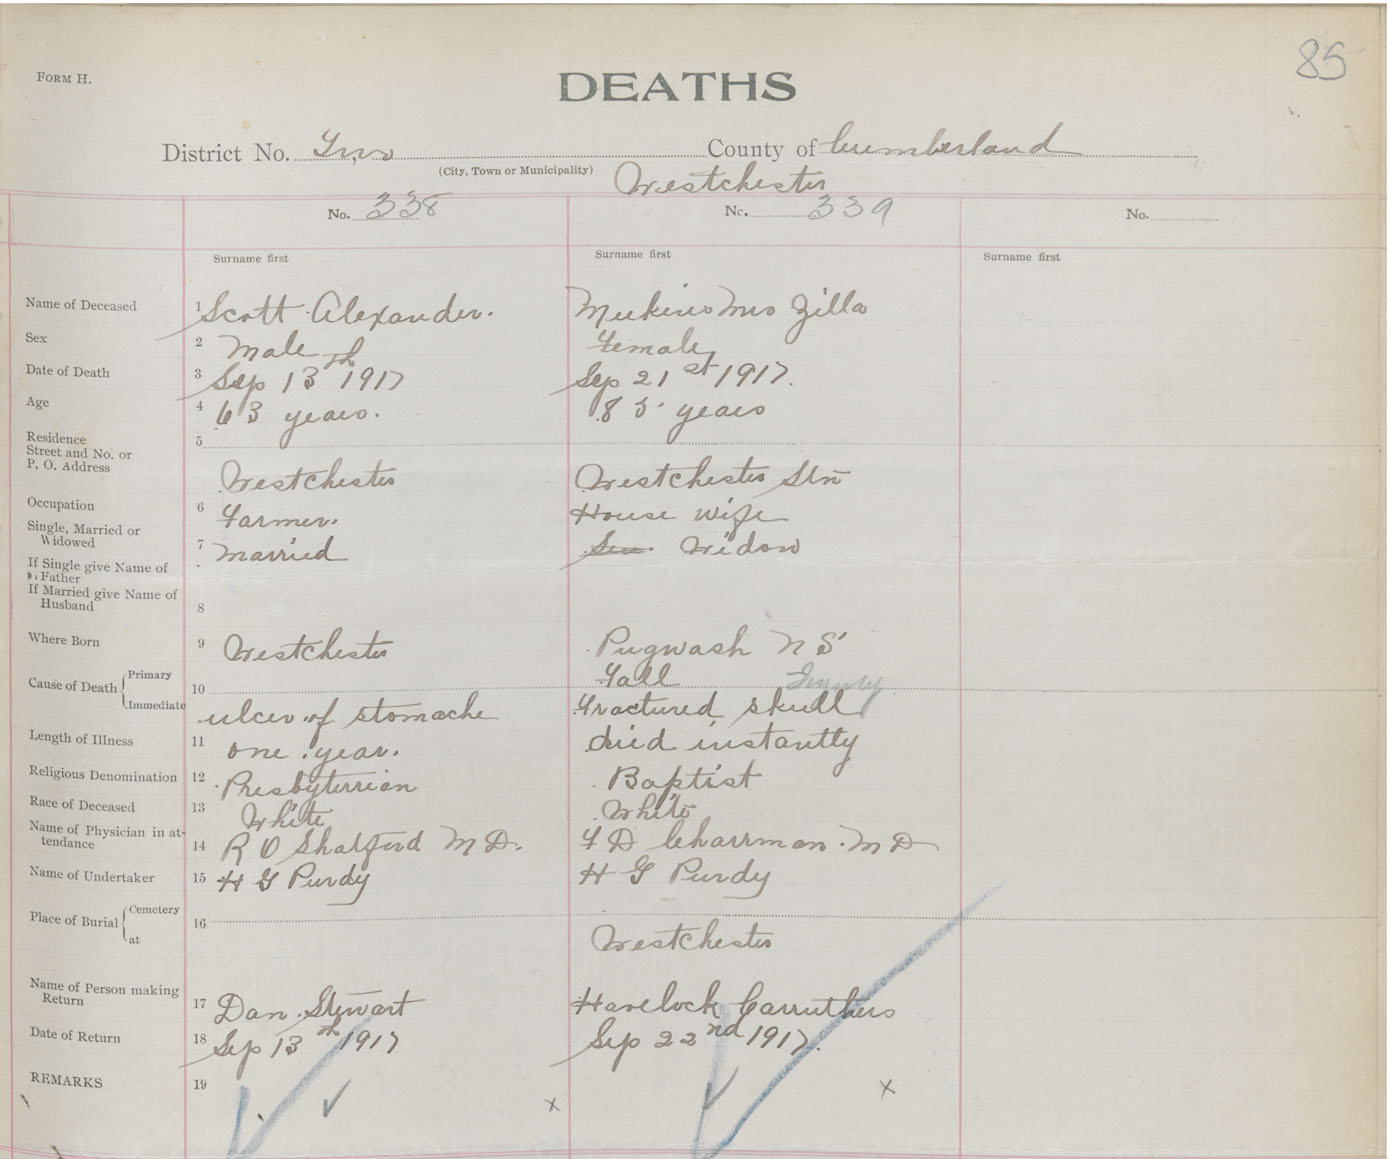 85
FORM H.
DEATHS
District No. Two County of Cumberland
(City, Town or Municipality) Westchester
No. 338 No. 339 No.
Surname first Surname first Surname first
Name of Deceased 1 Scott Alexander. Mrs Zilla
Sex 2 Male Female
Date of Death 3 Sep 13th 1917 Sep 21st 1917.
Age 4 63 years. 85 years
Residence
Street and No. or 5
P. O. Address
Westchester Westchester Stn
Occupation 6 Farmer. House wife
Single, Married or
Widowed 7 Married Widow
If Single give Name of
Father
If Married give Name of
Husband 8
Where Born 9 Westchester Pugwash N S
Cause of Death Primary 10 Fall
Immediate ulcer of stomache Fractured skull
Length of Illness 11 one year. died instantly
Religious Denomination 12 Presbyterrian Baptist
Race of Deceased 13 White White
Name of Physician in at-
tendance 14 R O Shatford M D. F D Charrman. M D
Name of Undertaker 15 H G Purdy H G Purdy
Place of Burial Cemetery 16
at Westchester
Name of Person making
Return 17 Dan. Stewart Havelock Carruthers
Date of Return 18 Sep 13th 1917 Sep 22nd 1917.
REMARKS 19